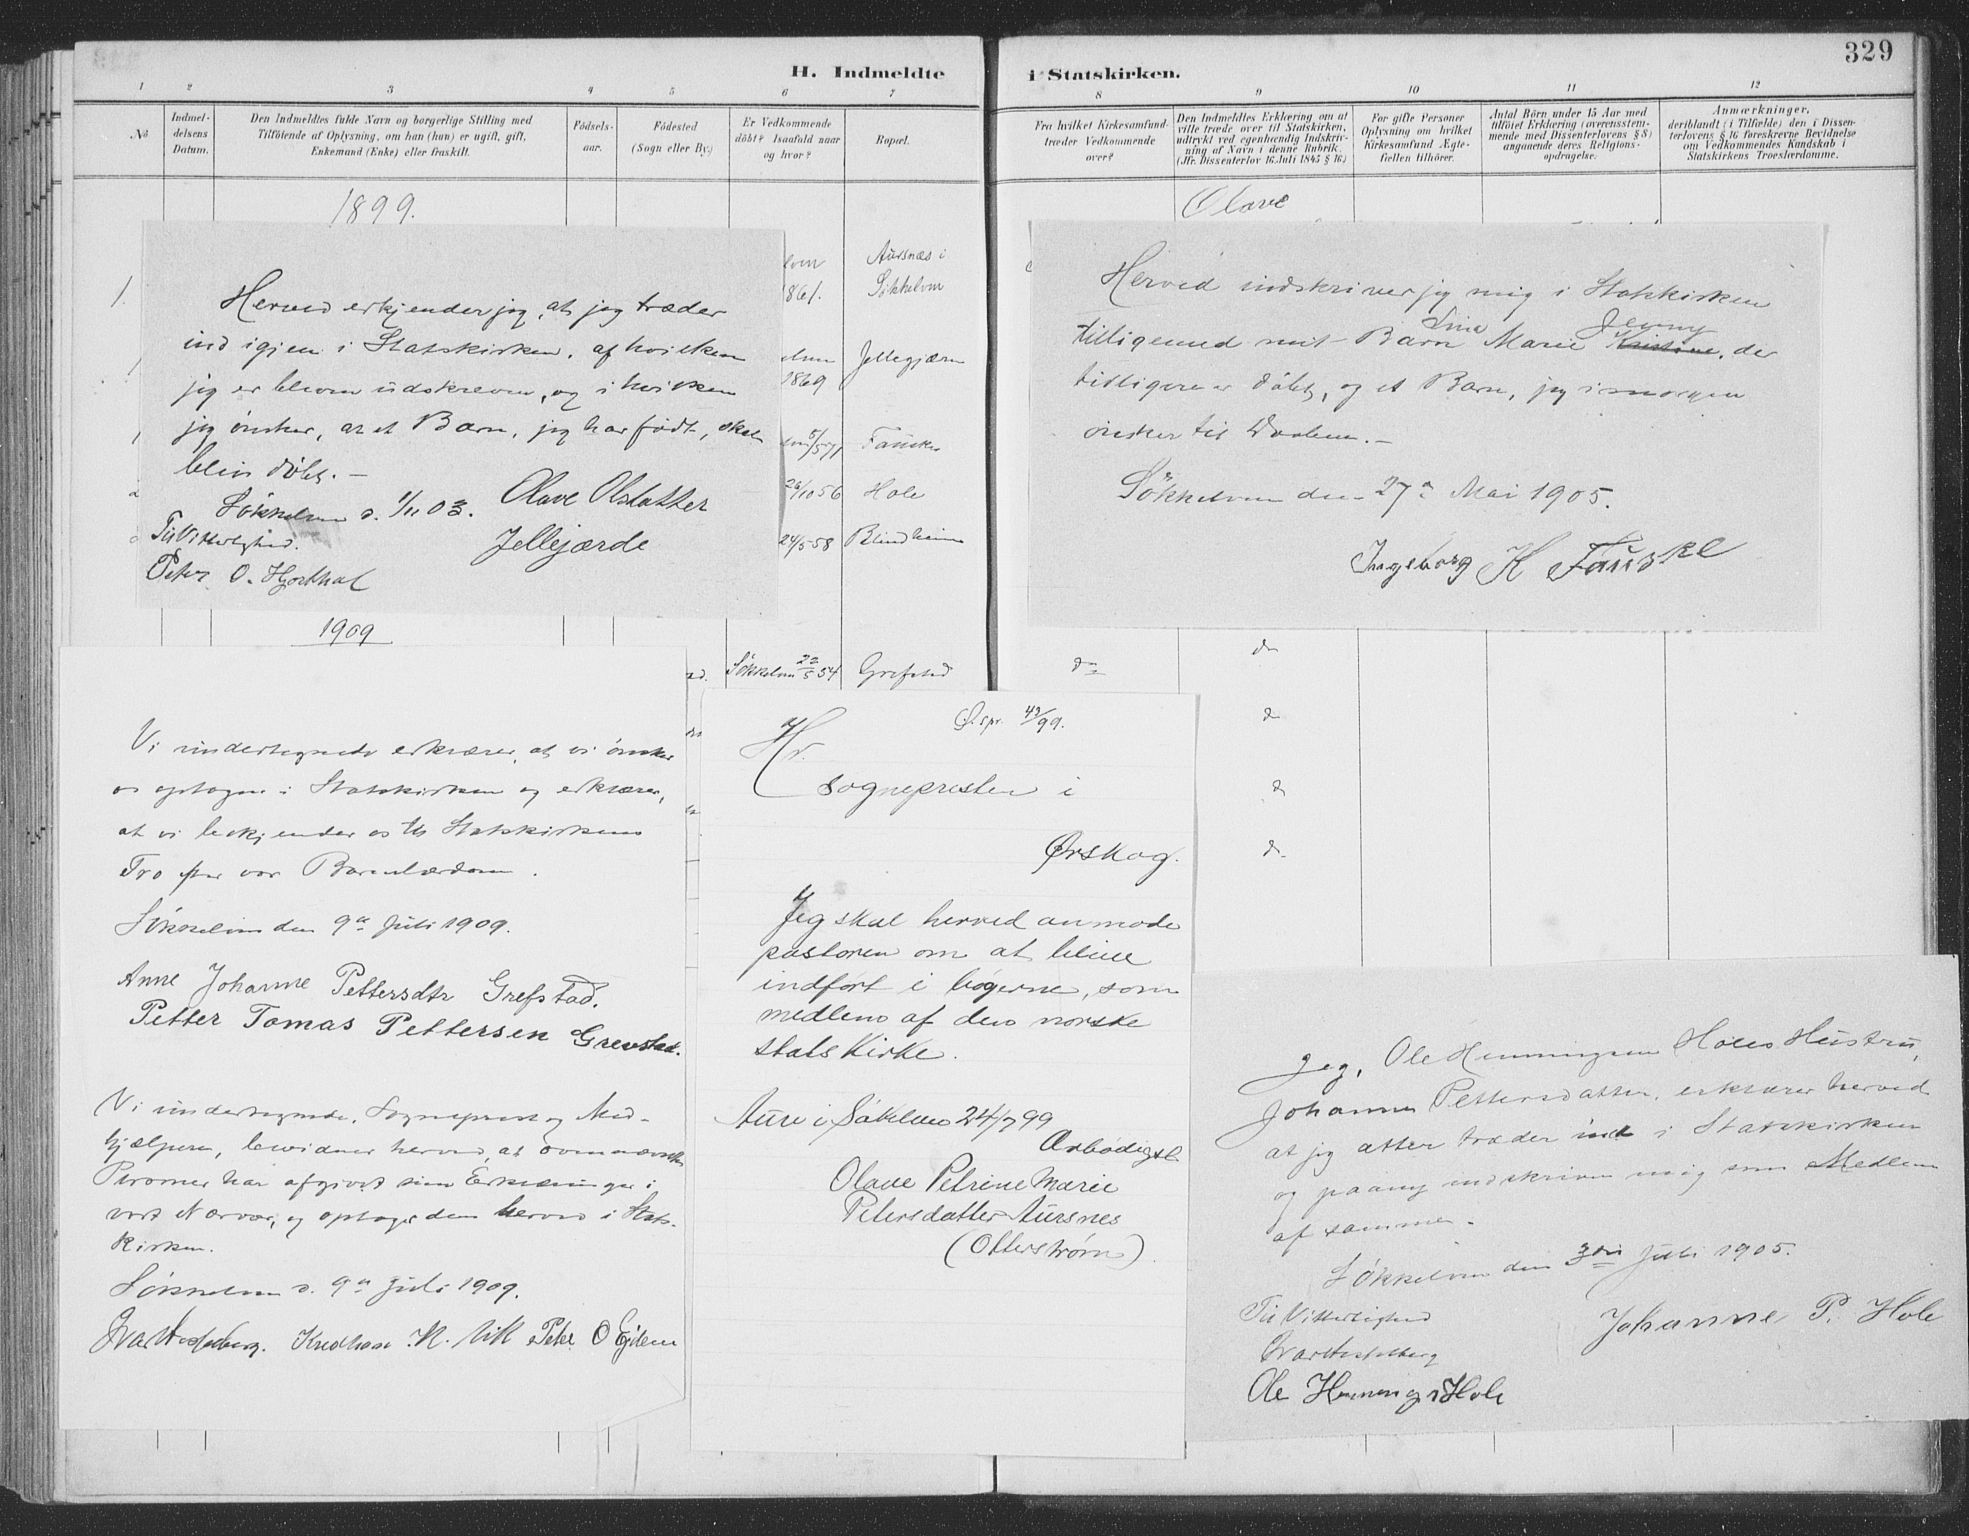 329
H. Indmeldte i Statskirken.
1 2 3 4 5 6 7 8 9 10 11 12
No
Indmel-
delsens
Datum.
Den Indmeldtes fulde Navn og borgerlige Stilling med
Tilföiende af Oplysning, om han (hun) er ugift, gift,
Enkemand (Enke) eller fraskilt.
Födsels-
aar.
Födested
(Sogn eller By.)
Er Vedkommende
döbt? Isaafald naar
og hvor?
Bopæl.
Fra hvilket Kirkesamfund
træder Vedkommende
over?
Den Indmeldtes Erklæring om at
ville træde over til Statskirken,
udtrykt ved egenhændig Indskriv-
ning af Navn i denne Rubrik.
(Jfr. Dissenterlov 16. Juli 1845 § 16)
For gifte Personer
Oplysning om hvilket
Kirkesamfund Ægte-
fællen tilhörer.
Antal Börn under 15 Aar med
tilföiet Erklæring (overensstem-
mende med Dissenterlovens § 8)
angaaende deres Religions-
opdragelse.
Anmærkninger,
deriblandt (i Tilfælde) den i Dissen-
terlovens § 16 foreskrevne Bevidnelse
om Vedkommendes Kundskab i
Statskirkens Troeslærdomme.
1899.
Olave
1.
1861.
Aursnæs i
Søkkelven
1869
Jellegjærn
Fauske
26/10 56
Hole
24/5 58
Blindheim
Herved erkjender jeg, at jeg træder
ind igjen i Statskirken, af hvilken
jeg er bleven udskreven, og i hvilken
jeg ønsker, at et Barn, jeg har født, skal
bliv døbt. —
Søkkelven d. 1/11 03.
Olave Olsdatter
Jellejærde
Til Vitterlighed.
Peter O. Hjorthol
Herved indskriver jeg mig i Statskirken
tilligemed mit Barn Lina Marie Kristine Jenny, der
tidligere er døbt, og et Barn, jeg imorgen
ønsker til Daaben. —
Søkkelven den 27de Mai 1905.
Ingeborg K Fauske
1909
Søkkelven 22/5 54
Grefstad
do
do
do
do
do
Vi undertegnede erklærer, at vi ønsker
os optagne i Statskirken og erklærer,
at vi bekjender os til Statskirkens
Tro efter vor Barnelærdom.
Søkkelven den 9de Juli 1909.
Anne Johanne Pettersdtr Grefstad.
Petter Tomas Pettersen Grevstad.
Vi undertegnede, Sogneprest og Med-
hjælpere, bevidner herved, at ovennævnte
Personer har afgivet sine Erklæringer i
vort Nærvær, og optages dem herved i Stats-
kirken.
Søkkelven d. 9de Juli 1909.
Knudham K. Vik Peter O Ejdem
Ø. spr. 43/99.
Hr.
Sognepresten i
Ørskog.
Jeg skal herved anmode
pastoren om at blive
indført i bøgerne, som
medlem af den norske
stats Kirke.
Aure i Søkelven 24/7 99
Ærbødigst
Olave Petrine Marie
Petersdatter Aursnes
(Otterstrøm)
Jeg, Ole Henningsen Holes Hustru,
Johanne Pettersdatter, erklærer herved
at jeg atter træder ind i Statskirken
og paany indskriver mig som Medlem
af samme.
Søkkelven den 3die Juli 1905.
Til Vitterlighed
Johanne P. Hole
Ole Hennings Hole